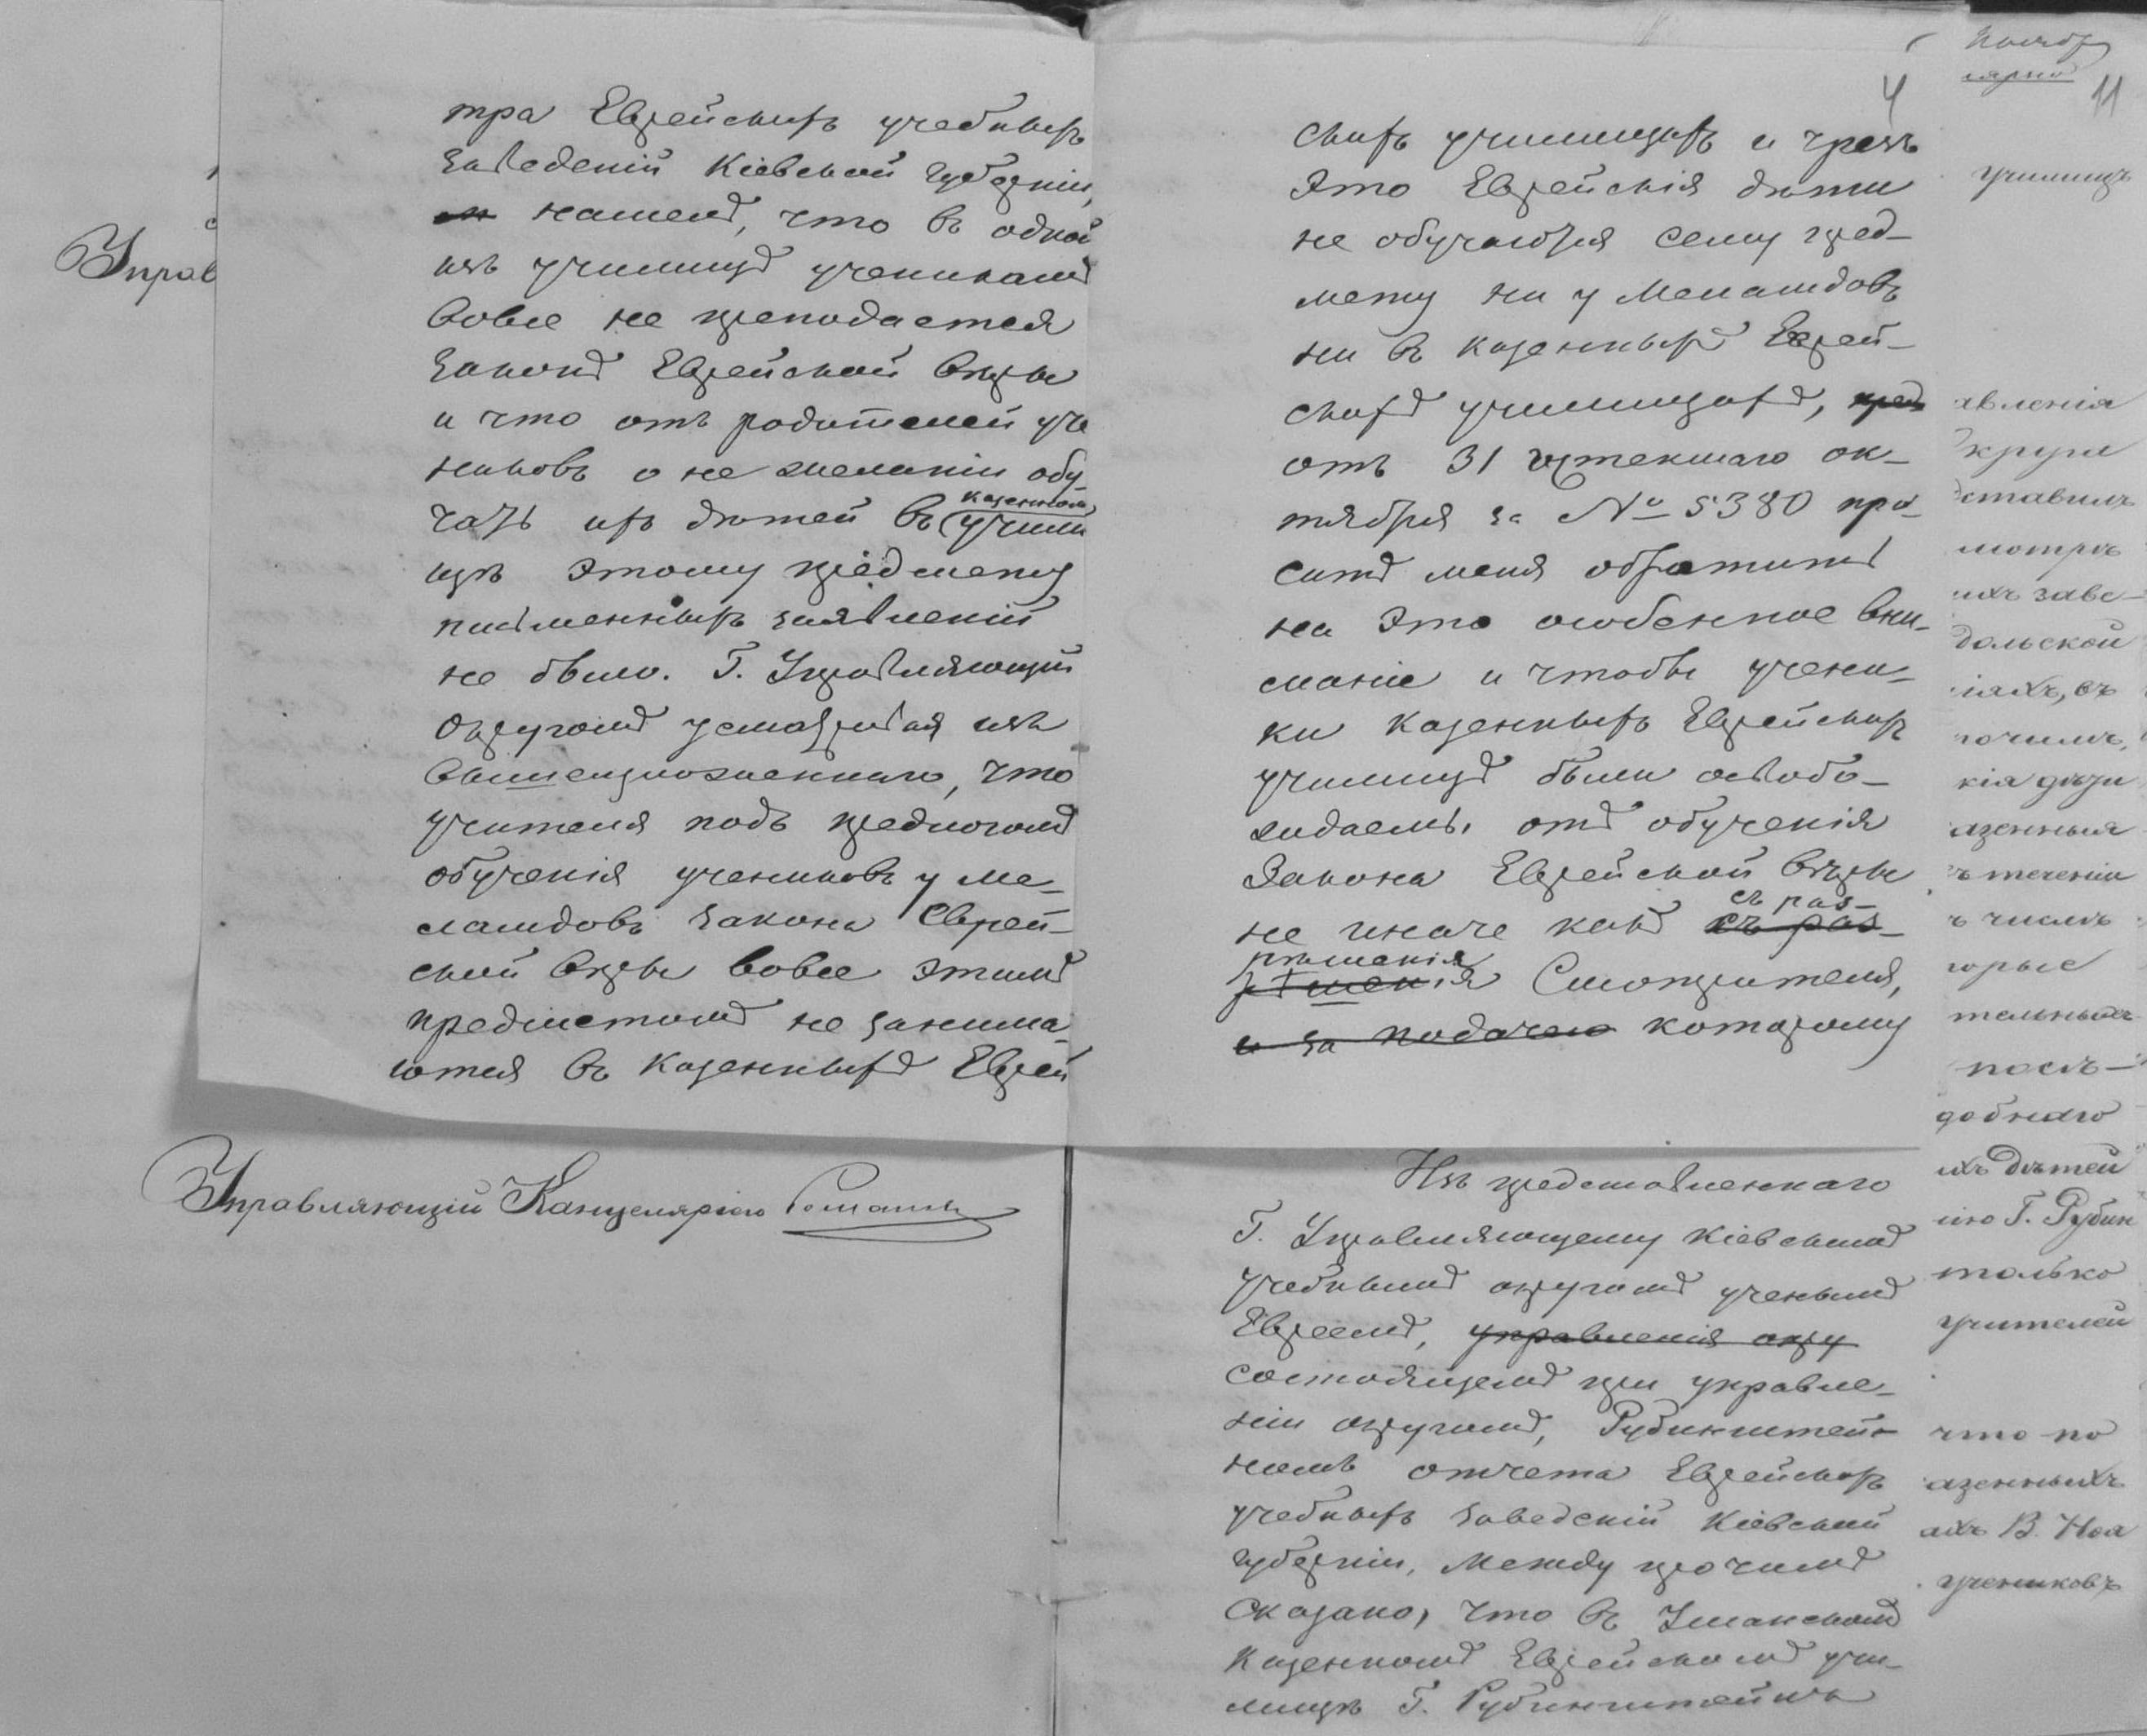 тра Еврейскихъ учебныхъ
заведеній Кіевской губерніи,
нашелъ, что въ одной
изъ училищъ ученикамъ
вовсе не преподается
законъ Еврейской вѣры
и что отъ родителей уче
никовъ о не желаніи обу
чать ихъ дѣтей въ казенномъ учили
щѣ этому предмету
письменныхъ заявленій
не было. Г. Управляющій
Округомъ усматривая изъ
вышеизложеннаго, что
учителя подъ предлогомъ
обученія учениковъ у ме-
ламдовъ закона Еврей-
ской вѣры вовсе этимъ
предметомъ не занима
ются въ казенныхъ Еврей
Управ
Управляющій Канцеляріею Романъ
4
скихъ училищахъ и чрезъ
это Еврейскія дѣти
не обучаются сему пред-
мету ни у Меламдовъ
ни въ казенныхъ Еврей-
скихъ училищахъ, пред
отъ 31 истекшаго ок-
тября за № 5380 про-
ситъ меня обратить
на это особенное вни-
маніе и чтобы учени-
ки казенныхъ Еврейскихъ
училищъ были освобо-
ждаемы отъ обученія
Закона Еврейской вѣры
не иначе какъ съ раз-
рѣшенія Смотрителя,
и за подачею которому
Изъ представленнаго
Г. Управляющему Кіевскимъ
учебнымъ округомъ ученымъ
Евреемъ, управленія окру
состоящемъ при управле-
ніи округомъ, Рубинштей-
номъ отчета Еврейскихъ
учебныхъ заведеній Кіевской
губерніи, между прочимъ
сказано, что въ Уманскомъ
казенномъ Еврейскомъ учи-
лищѣ Г. Рубинштейнъ
11
училищъ
авленія
Округа
дставилъ
мотръ
ихъ заве-
дольской
іяхъ, съ
рочимъ,
кія дѣти
азенныя
ъ теченіи
ъ числѣ
торые
тельныхъ
послѣ-
добнаго
ихъ дѣтей
нію Г. Рубин
только
учителей
что по
азенныхъ
ахъ В. Ноа
учениковъ